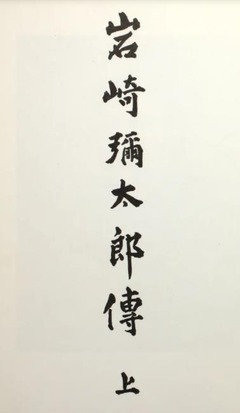 岩崎彌太郎傳 上